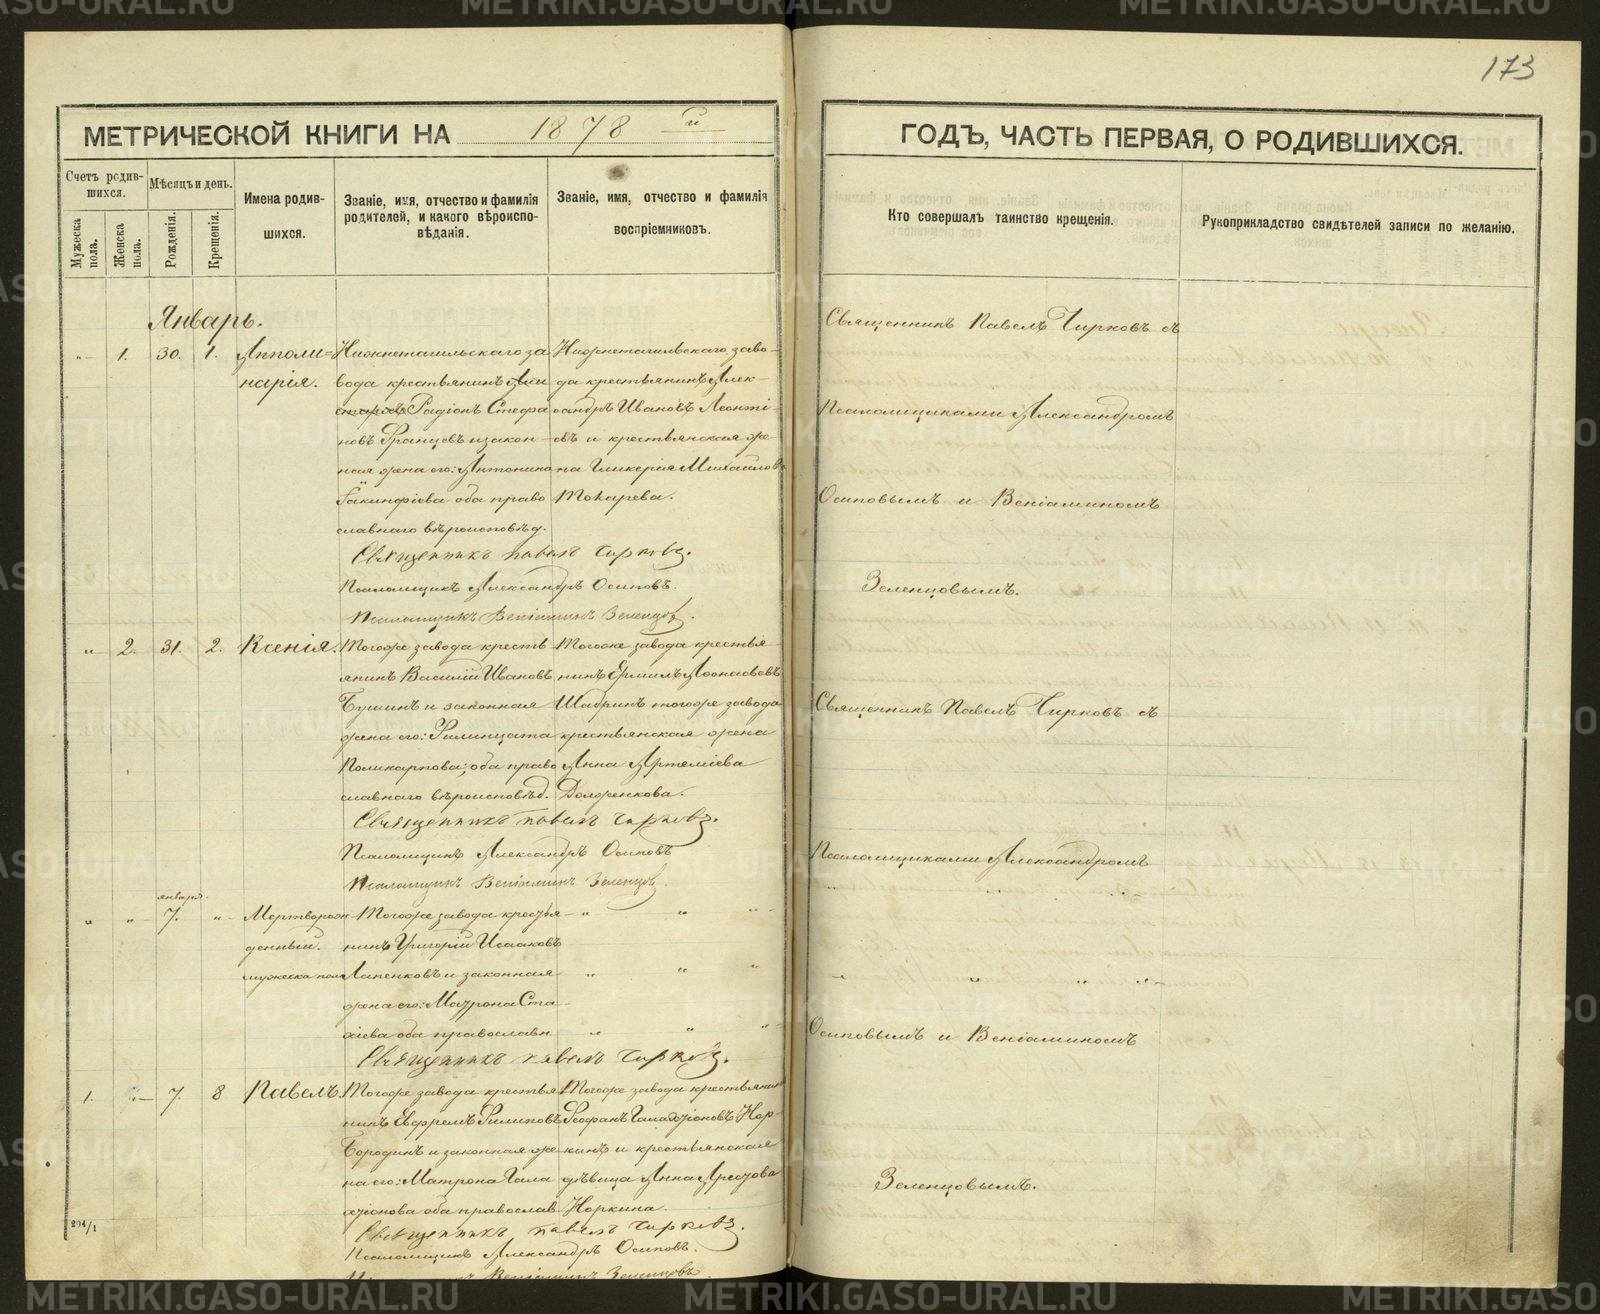 173
МЕТРИЧЕСКОЙ КНИГИ НА 1878 й
ГОДЪ, ЧАСТЬ ПЕРВАЯ, О РОДИВШИХСЯ.
Счетъ родив-
шихся.
Мужеска пола.
Женска пола.
Мѣсяцъ и день.
Рожденія.
Крещенія.
Имена родив-
шихся.
Званіе, имя, отчество и фамилія
родителей, и какого вѣроиспо-
вѣданія.
Званіе, имя, отчество и фамилія
воспріемниковъ.
Кто совершалъ таинство крещенія.
Рукоприкладство свидѣтелей записи по желанію.
Январь.
1. 30. 1.
Апполи=
нарія.
Нижнетагильскаго за
вода крестьянинъ
Радіонъ Стефа
новъ Францевъ и закон-
ная жена его: Антонина
Іакинфіева оба право
славнаго вѣроисповѣд.
Священникъ Павелъ Чирковъ.
Псаломщикъ Александръ Осиповъ.
Псаломщикъ Веніаминъ Зеленцовъ.
Нижнетагильскаго заво-
да крестьянинъ Алек-
сандръ Ивановъ Леонті-
евъ и крестьянская же-
на Гликерія Михайлов
Токарева.
Священникъ Павелъ Чирковъ съ
Псаломщиками Александромъ
Осиповымъ и Веніаминомъ
Зеленцовымъ.
2. 31. 2.
Ксенія.
Тогоже завода кресть
янинъ Василій Ивановъ
Бушинъ и законная
жена его: Филицата
Поликарпова; оба право
славнаго вѣроисповѣд.
Священникъ Павелъ Чирковъ.
Псаломщикъ Александръ Осиповъ
Псаломщикъ Веніаминъ Зеленцовъ.
Тогоже завода крестья
нинъ Ермилъ Афонасьевъ
Шабринъ тогоже завода
крестьянская жена
Анна Артеміева
Долженкова.
Священникъ Павелъ Чирковъ съ
Псаломщиками Александромъ
Осиповымъ и Веніаминомъ
Зеленцовымъ.
января
7.
Мертворож-
денный.
мужеска пола
Тогоже завода крестья-
нинъ Григорій Исааковъ
Лапенковъ и законная
жена его: Матрона Ста-
хіева оба православн.
Священникъ Павелъ Чирковъ.
1. 7. 8
Павелъ.
Тогоже завода крестья
нинъ Ефремъ Филиповъ
Бородинъ и законная же
на его: Матрона Гала
хтіонова оба православ
Священникъ Павелъ Чирковъ.
Псаломщикъ Александръ Осиповъ.
Веніаминъ Зеленцовъ.
Тогоже завода крестьянин
Феофанъ Галахтіоновъ Нор-
кинъ и крестьянская
дѣвица Анна
Норкина.
294/1
METRIKI.GASO-URAL.RU